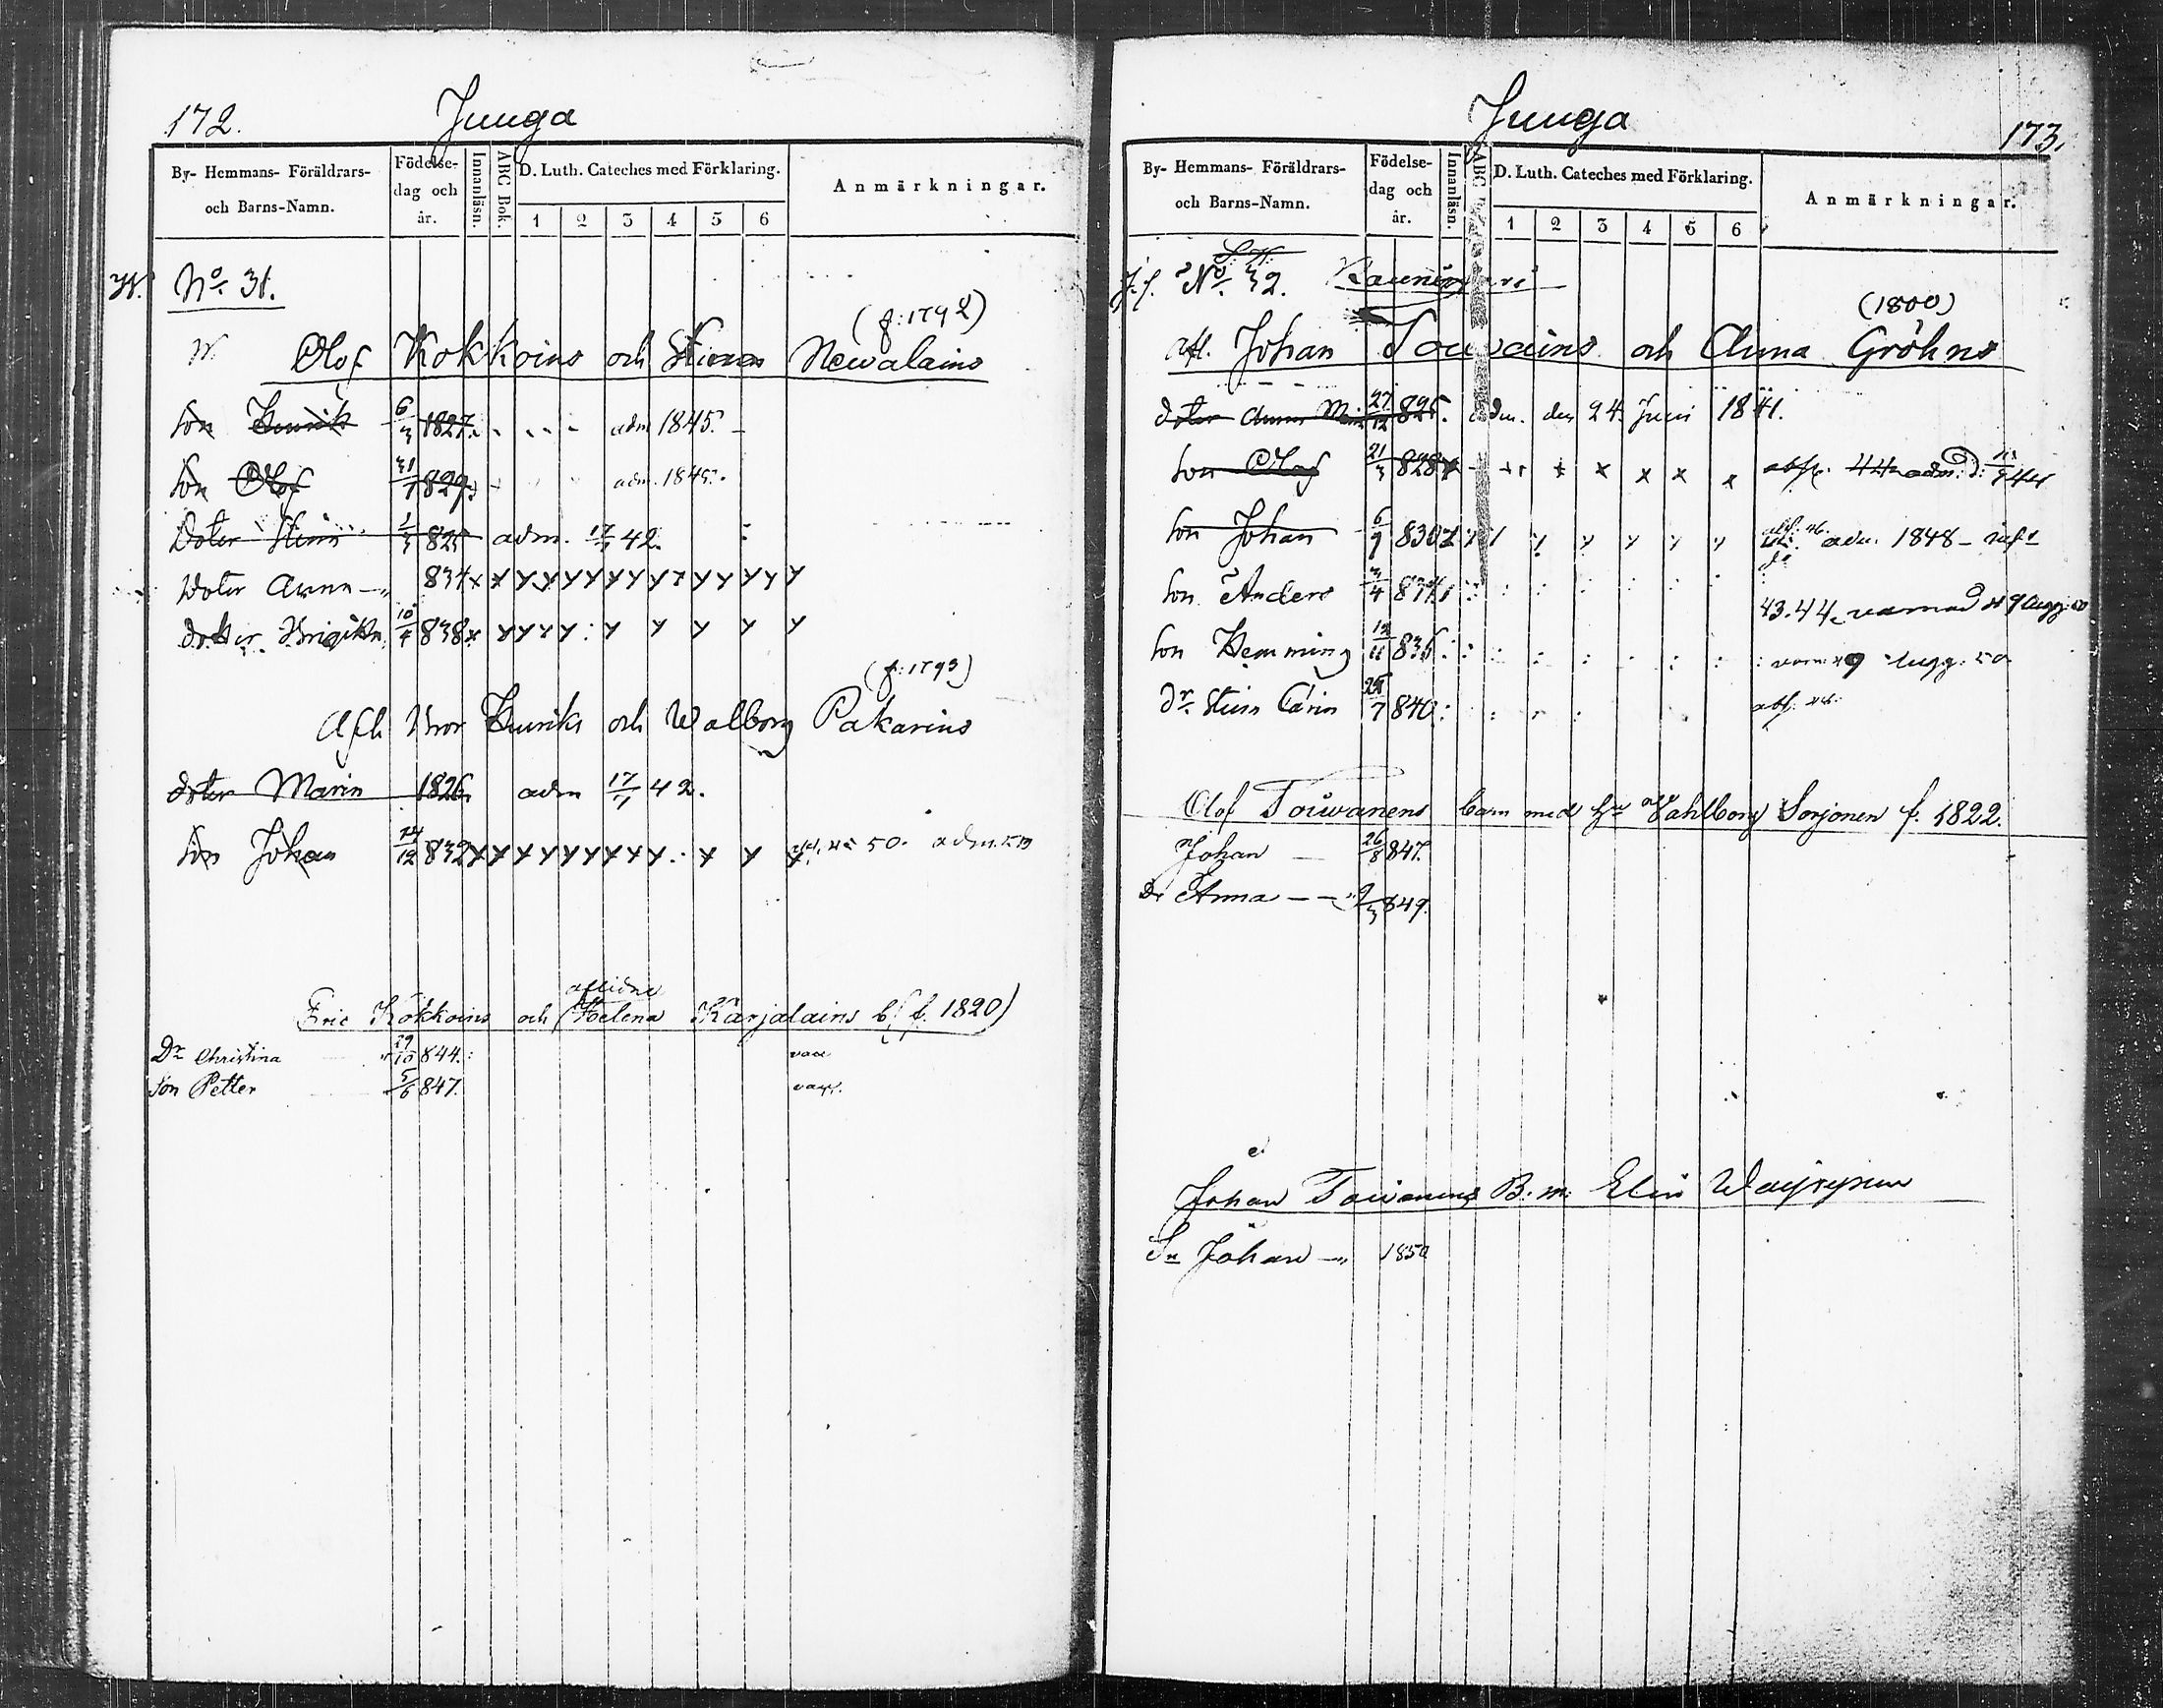 172.
Junga
By- Hemmans- Föräldrars- och Barns-Namn.
Födelse- dag och år.
Innanläsn.
ABC Bok.
D. Luth. Cateches med Förklaring.
1 2 3 4 5 6
Anmärkningar.
No. 31.
(f: 1792)
Olof Kokkoins och Newalains
Son Henrik 6/3 1827. adm 1845.
Son Olof 31/7 829. adm. 1845.
Doter Stina 1/3 825 adm. 17/7 42.
Doter Anna 834 x x y y y y y y y x y y y y y
dotter Brigitta 10/4 838 x y y y y : y y y y y
(f: 1793)
Afl. Bror Henriks och Walborg Pakarins
doter Maria 1826. adm 17/7 42.
Son Johan 24/12 832 x x x y y y y x x y . : x y 50. adm.
aflidne
Eric Kokkoins och Helena Karjalains b. (f. 1820)
Dr Christina 29/10 844. vac
Son Petter 5/6 847. vac.
Junga
173.
By- Hemmans- Föräldrars- och Barns-Namn.
Födelse- dag och år.
Innanläsn.
ABC
D. Luth. Cateches med Förklaring.
1 2 3 4 5 6
Anmärkningar.
No. 32.
(1800)
afl. Johan Touwains och Anna Gröhns
doter Anna 27/12 825. adm. den 24. Juni 1841.
Son Olof 21/3 828 x x x x x x 44
Son Johan 6/9 830 y y y y y y adm. 1848
Son Anders 3/4 834 43. 44. 9 Aug: 50
Son Hemming 12/11 836 : : : : : 9 Aug: 50
dr. Stina Carin 7 840 :
Olof Touwanens barn med hu Wahlborg Sorjonen f. 1822.
Johan 26/8 847.
Dr Anna 2/3 849.
Johan Touwanens B. m. Elin
Sn Johan 1850